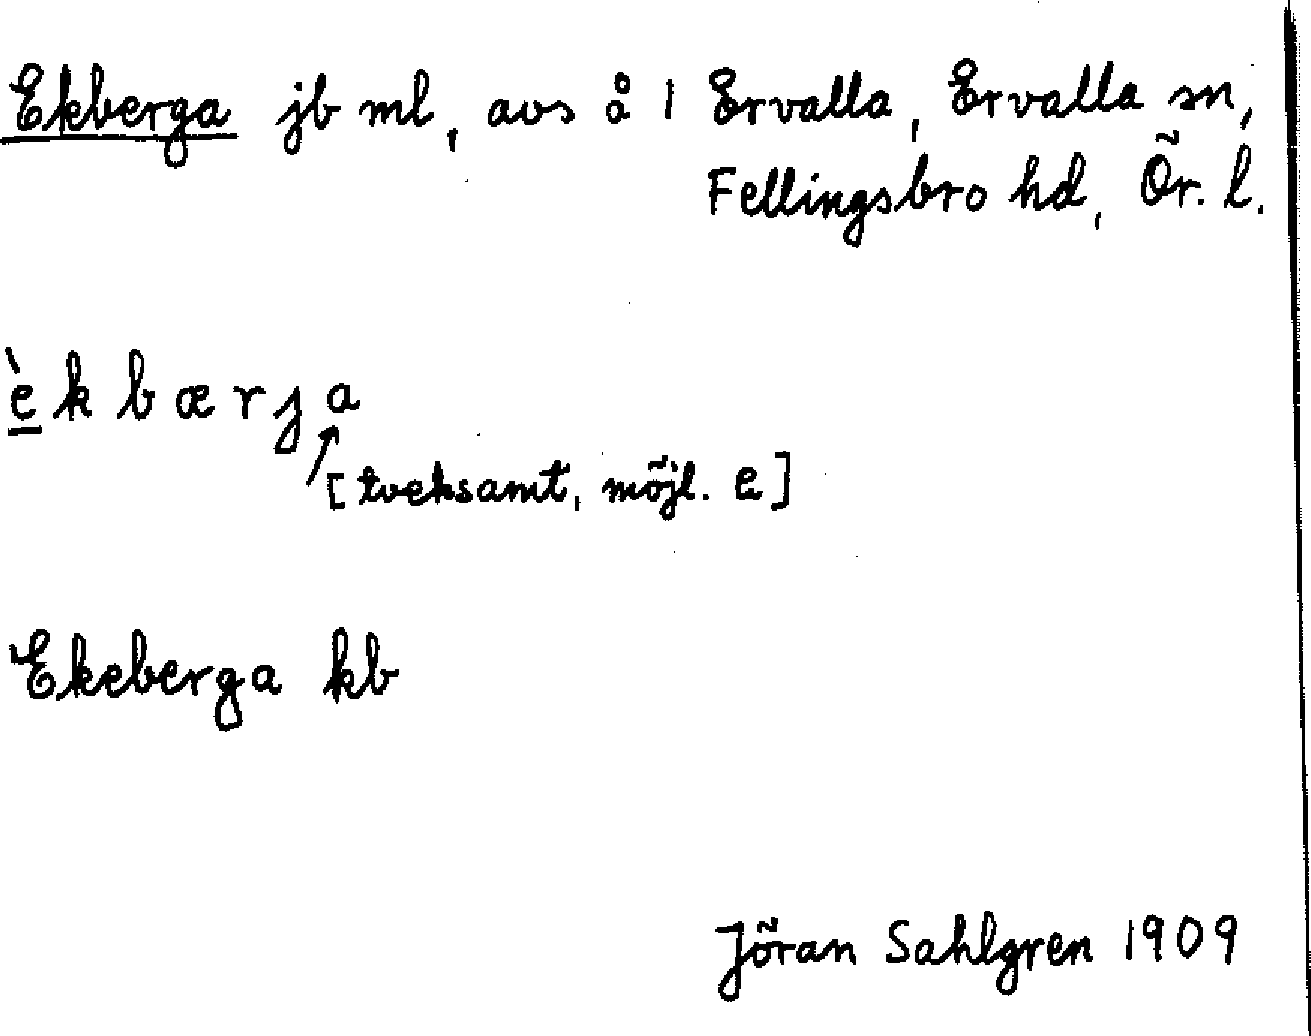 Ekberga jb ml, avs å 1 Ervalla, Ervalla sn,
Fellingsbro hd, Ör. l.
è̱kbærja
[tveksamt, möjl. e]
Ekeberga kb
Jöran Sahlgren 1909